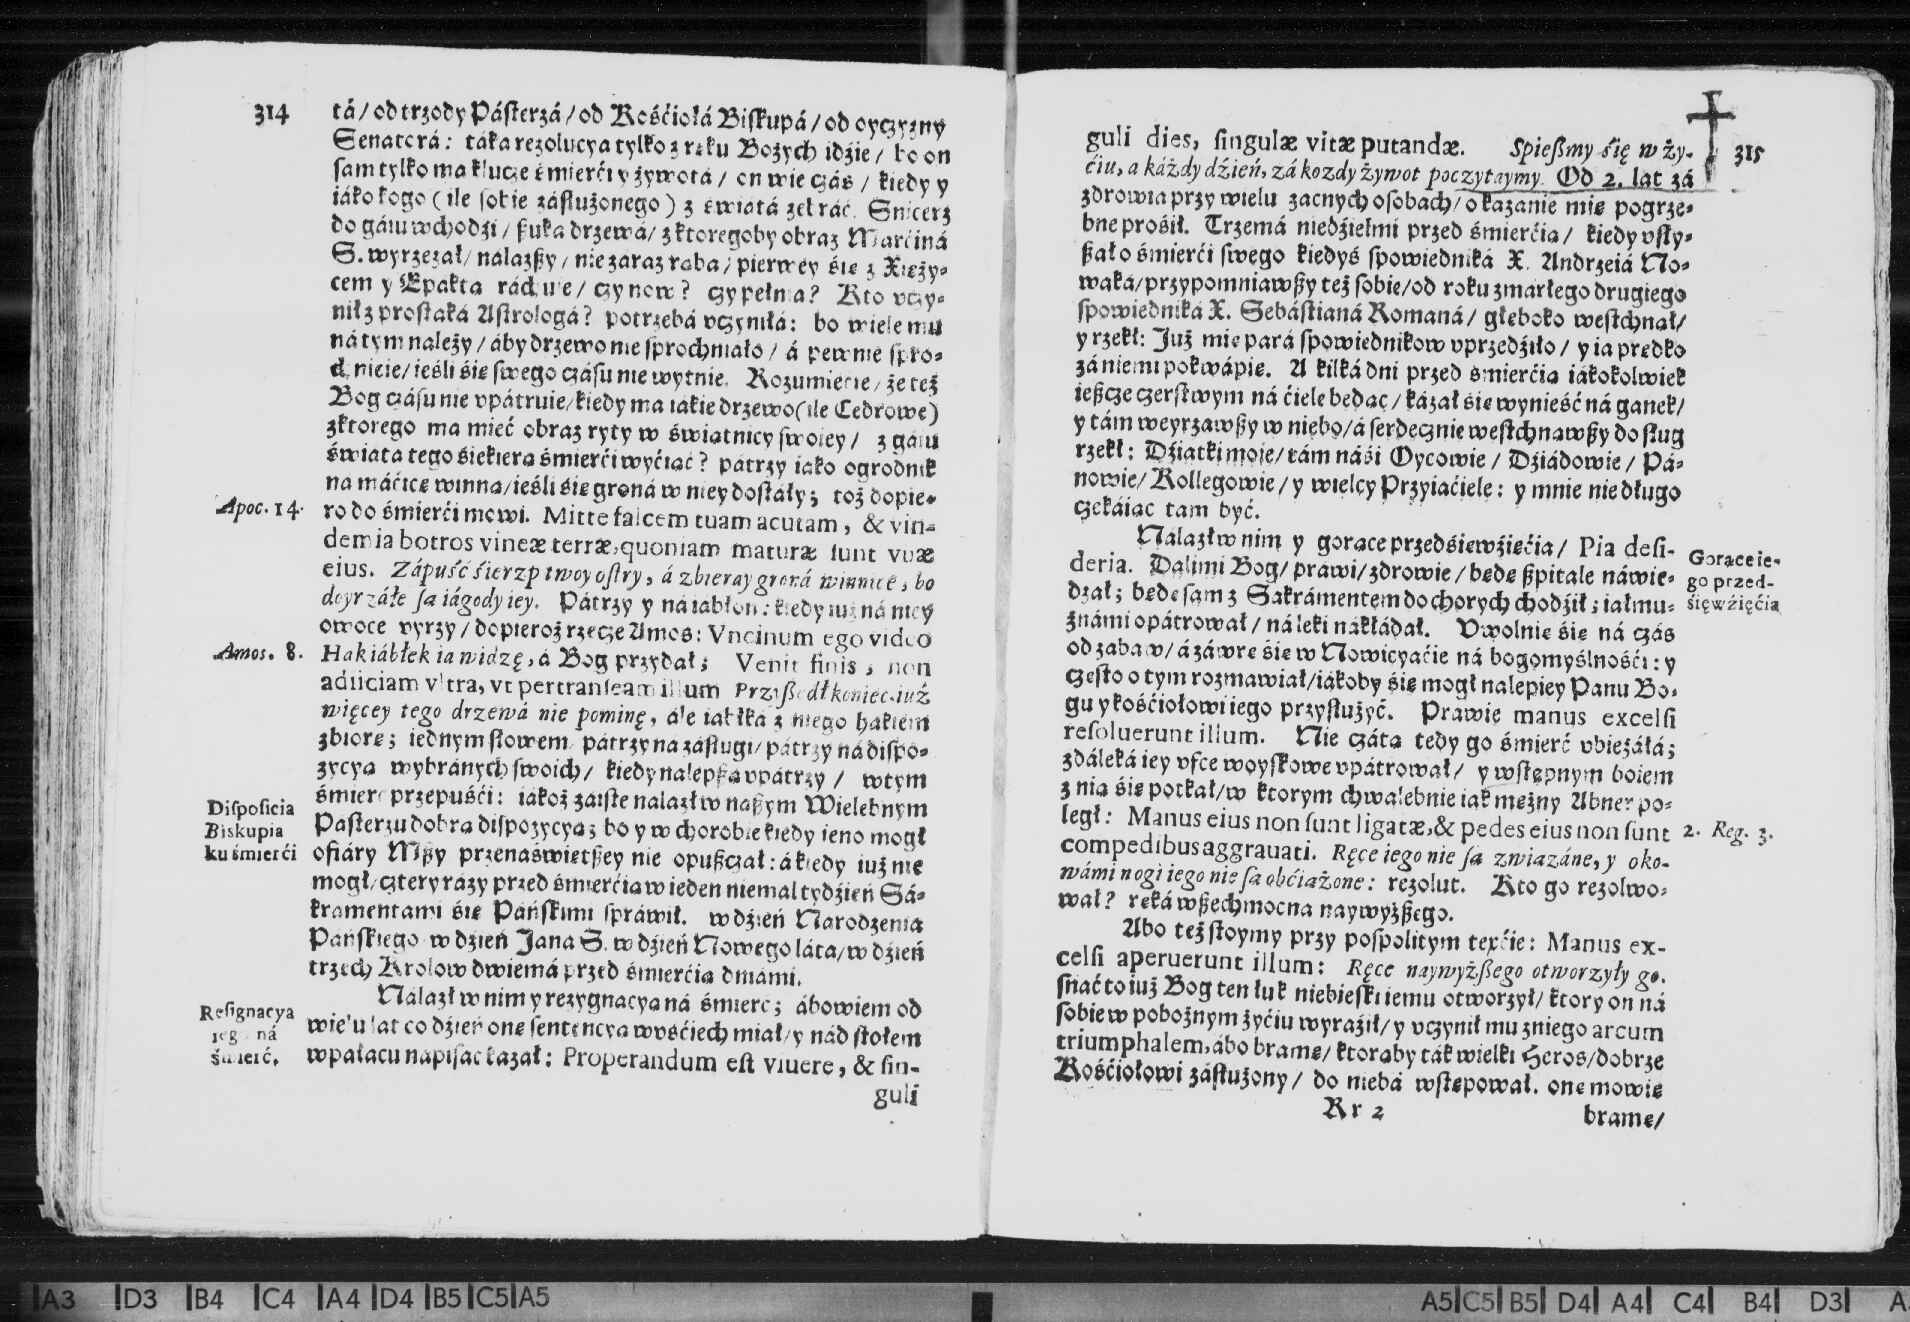 314
tá/ od trzody Pásterzá/ od Kośćiołá Biskupá/ od oyczyzny
Senatorá: táka rezolucya tylko z ręku Bożych idźie/ bo on
sam tylko ma klucze śmierći y żywotá/ on wie czás/ kiedy y
iáko kogo (ile sobie zásłużonego) z świátá zebráć. Snicerz
do gáiu wchodźi/ ßuka drzewá/ z ktoregoby obraz Marćiná
S. wyrzezał/ nalazßy/ nie zaraz rąba/ pierwey się z Xięży-
cem y Epaktą ráchuie/ czy now? czy pełnia? Kto vczy-
nił z prostaká Astrologá? potrzebá vczyniłá: bo wiele mu
ná tym należy/ áby drzewo nie sprochniało/ á pewnie spro-
chnieie/ ieśli się swego czásu nie wytnie. Rozumiecie/ że też
Bog czásu nie vpátruie/ kiedy ma iákie drzewo (ile Cedrowe)
z ktorego ma mieć obraz ryty w świątnicy swoiey/ z gáiu
świáta tego śiekierą śmierći wyćiąć? pátrzy iáko ogrodnik
na máćicę winną/ ieśli się groná w niey dostáły; toż dopie-
ro do śmierći mowi. Mitte falcem tuam acutam, & vin-
demia botros vineæ terræ, quoniam maturæ sunt vuæ
eius. Zápuść śierzp twoy ostry, á zbieray groná winnice, bo
doyrzáłe są iágody iey. Pátrzy y ná iabłoń: kiedy iuż ná niey
owoce vyrzy/ dopieroż rzecze Amos: Vncinum ego video
Hak iábłek ia widzę, á Bog przydał; Venit finis, non
adiiciam vltra, vt pertranseam illum Przyßedł koniec, iuż
więcey tego drzewá nie pominę, ále iabłká z niego hakiem
zbiorę; iednym słowem pátrzy ná zásługi/ pátrzy ná dispo-
zycyą wybránych swoich/ kiedy nalepßą vpátrzy/ w tym
śmierć przepuśći: iákoż záiste nalazł w náßym Wielebnym
Pásterzu dobrą dispozycyą; bo y w chorobie kiedy ieno mogł
ofiáry Mßy przenaświętßey nie opußczał: á kiedy iuż nie
mogł/ cztery rázy przed śmierćią w ieden niemal tydźień Sá-
kramentami się Páńskimi spráwił. w dźień Narodzenia
Páńskiego w dźień Jana S. w dźień Nowego láta/ w dźień
trzech Krolow dwiemá przed śmierćią dniámi.
Nálazł w nim y rezygnacyą ná śmierć; ábowiem od
wielu lat co dźień onę sentencyą w vśćiech miał/ y nád stołem
w pałacu napisáć kazał: Properandum est viuere, & sin-
guli
Apoc. 14.
Amos. 8.
Disposicia
Biskupia
ku śmierći
Resignacya
iego ná
śmierć.
315
guli dies, singulæ vitæ putandæ. Spießmy się w ży-
ćiu, a káżdy dźień, zá kozdy żywot poczytaymy. Od 2. lat zá
zdrowia przy wielu zacnych osobach/ o kazanie mię pogrze-
bne prośił. Trzemá niedźielmi przed śmierćią/ kiedy vsły-
ßał o śmierći swego kiedyś spowiedniká X. Andrzeiá No-
waká/ przypomniawßy też sobie/ od roku zmárłego drugiego
spowiedniká X. Sebástianá Romaná/ głęboko westchnął/
y rzekł: Już mię pará spowiednikow vprzedźiło/ y ia prędko
zá niemi pokwápię. A kilká dni przed śmierćią iákokolwiek
ießcze czerstwym ná ćiele będąc/ kázał się wynieść ná ganek/
y tám weyrzawßy w niebo/ á serdecznie westchnąwßy do sług
rzekł: Dźiatki moie/ tám náśi Oycowie/ Dźiádowie/ Pá-
nowie/ Kollegowie/ y wielcy Przyiaćiele: y mnie nie długo
czekáiąc tam być.
Nálazł w nim y gorące przedśięwźięćia/ Pia desi-
deria. Da li mi Bog/ práwi/ zdrowie/ będę ßpitale náwie-
dzał; będę sam z Sakrámentem do chorych chodźił; iałmu-
żnámi opátrował/ ná leki nakłádał. Vwolnię się ná czás
od zabaw/ á záwrę się w Nowicyaćie ná bogomyślnośći: y
często o tym rozmawiał/ iakoby się mogł nalepiey Panu Bo-
gu y kośćiołowi iego przysłużyć. Prawie manus excelsi
resoluerunt illum. Nie czátą tedy go śmierć vbieżáłá;
z dáleká iey vfce woyskowe vpátrował/ y wstępnym boiem
z nią się potkał/ w ktorym chwalebnie iak mężny Abner po-
legł: Manus eius non sunt ligatæ, & pedes eius non sunt
compedibus aggrauati. Ręce iego nie są związáne, y oko-
wámi nogi iego nie są obćiążone: rezolut. Kto go rezolwo-
wał? ręká wßechmocna naywyżßego.
Abo też stoymy przy pospolitym texćie: Manus ex-
celsi aperuerunt illum: Ręce naywyżßego otworzyły go.
snać to iuż Bog ten łuk niebieski iemu otworzył/ ktory on ná
sobie w pobożnym żyćiu wyráźił/ y vczynił mu z niego arcum
triumphalem, ábo bramę/ ktorąby ták wielki Heros/ dobrze
Kośćiołowi zásłużony/ do niebá wstępował. onę mowię
Rr 2
bramę/
Gorące ie-
go przed-
śięwźięćia
2. Reg. 3.